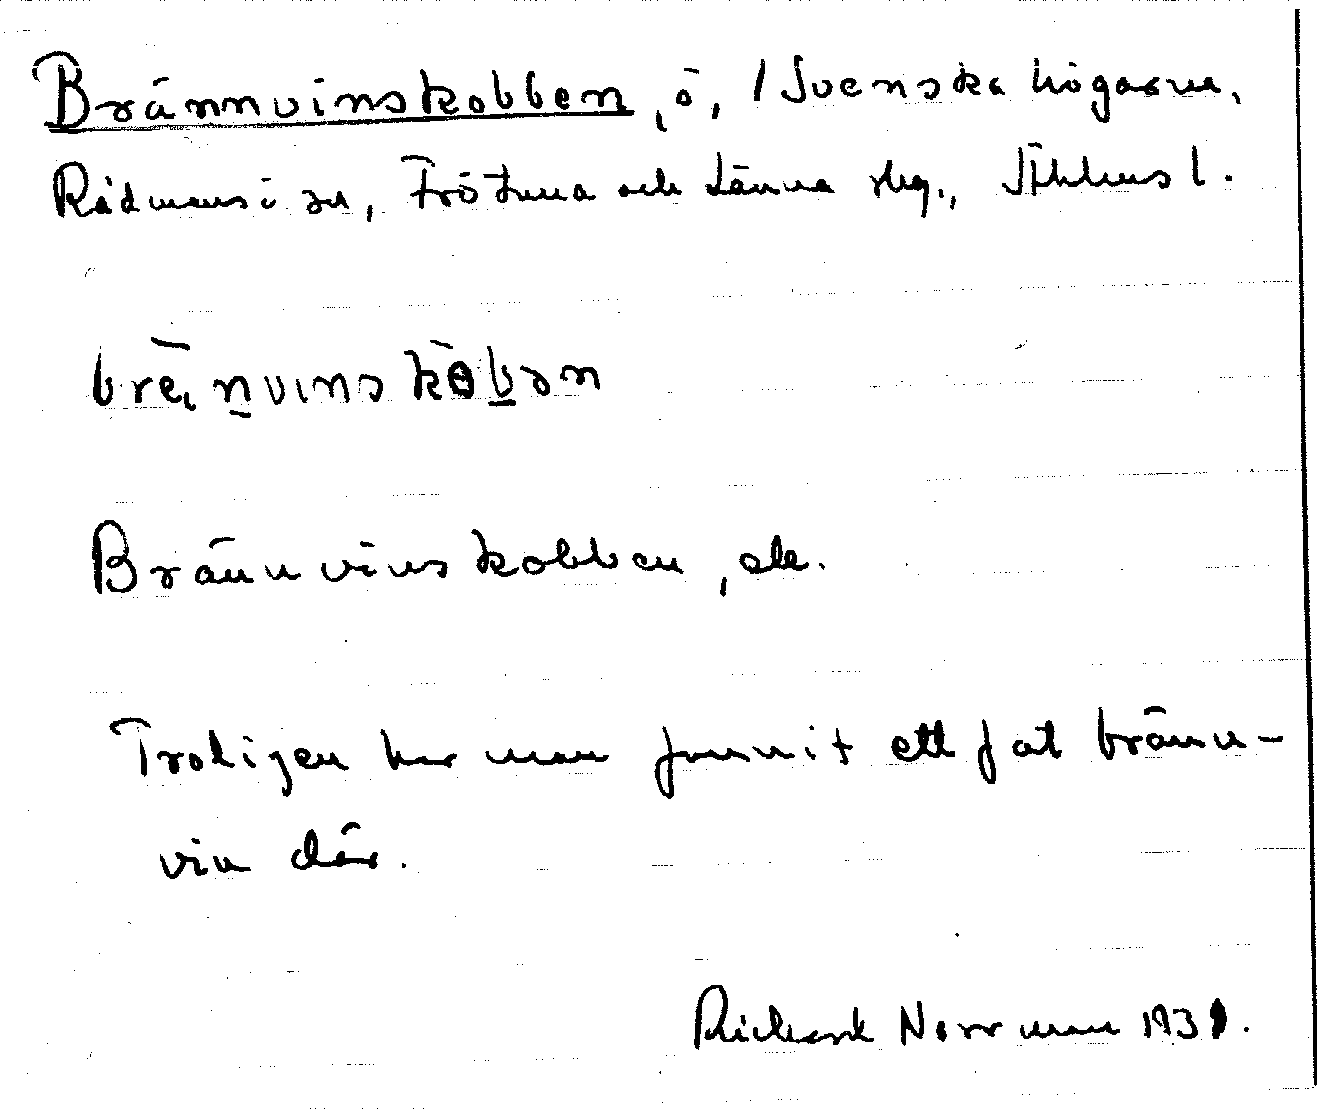 Brännvinskobben, ö, / Svenska högarna,
Rådmansö sn, Frötuna och Länna skg., Sthlms l.
Brännvinskobben, ek.
Troligen har man funnit ett fat bränn-
vin där.
Richard Norrman 1931.